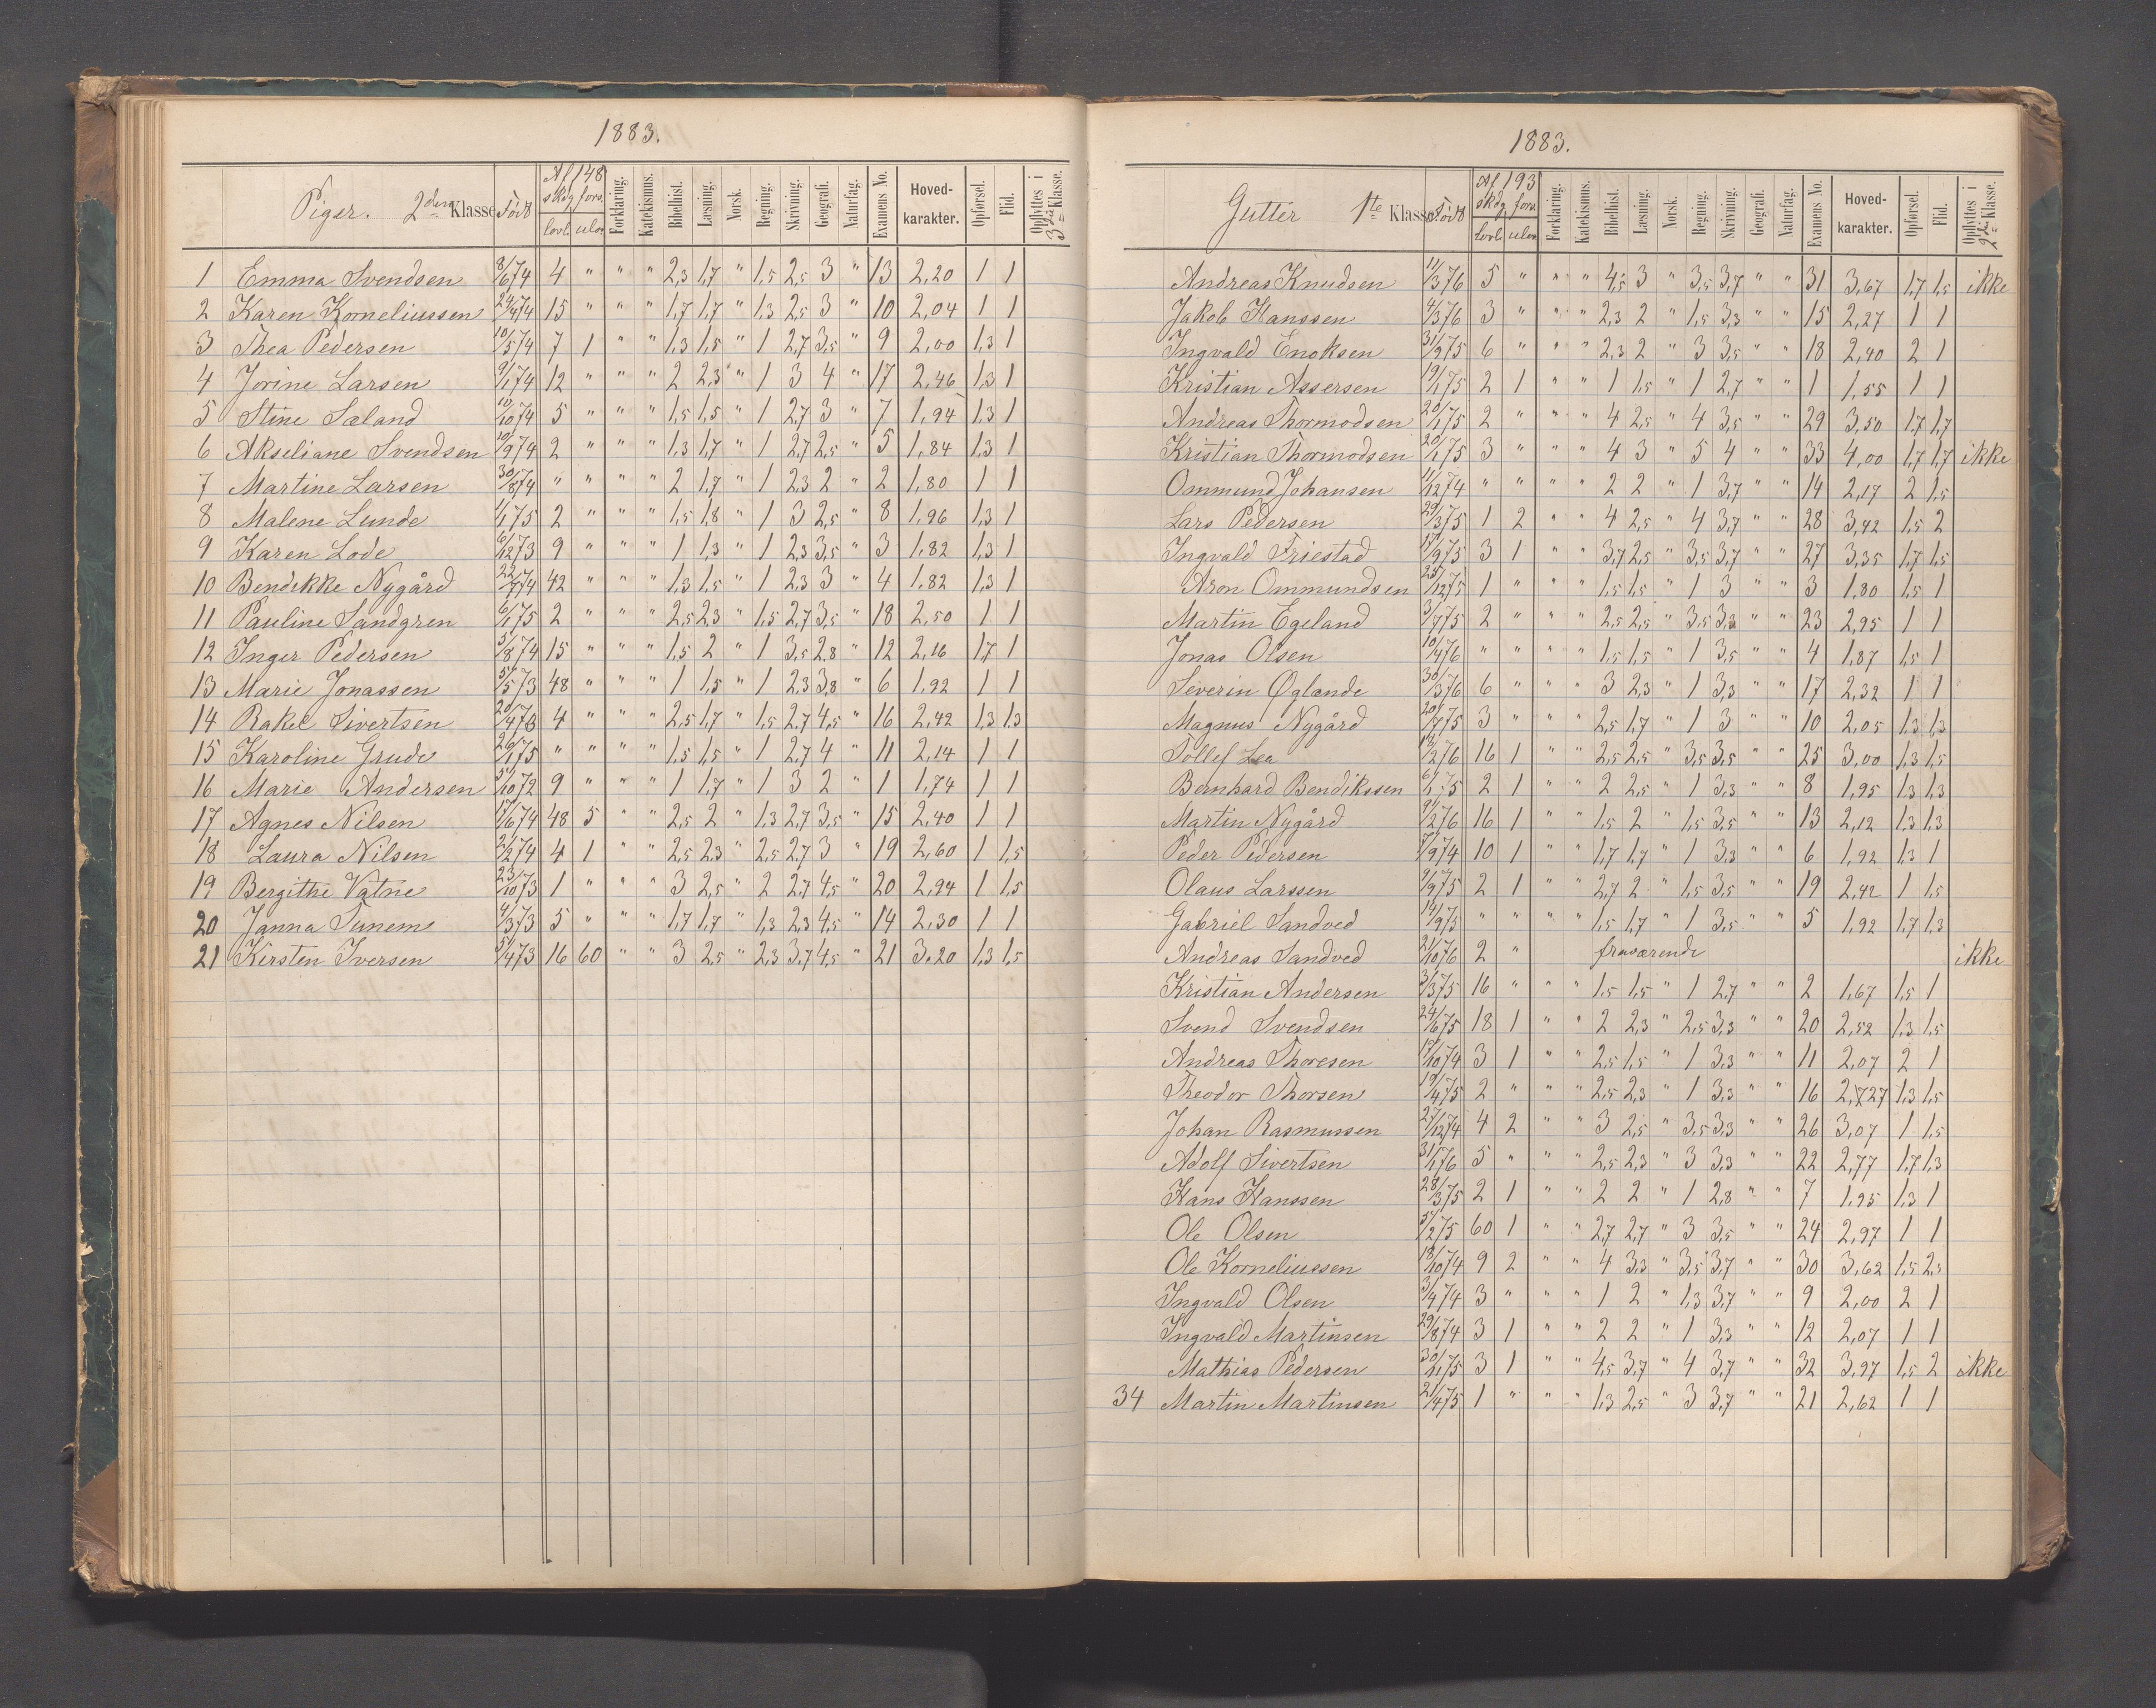 1883.
Piger. 2den Klasse Född Af 148 skdg, fors. lovl. ulov. Forklaring. Katekismus. Bibelhist. Læsning. Norsk. Regning. Skrivning. Geografi. Naturfag. Examens No. Hoved-karakter. Opførsel. Flid. Opflyttes i 3die Klasse.
1 Emma Svendsen 8/6 74 4 " " " 2,3 1,7 " 1,5 2,5 3 " 13 2,20 1 1
2 Karen Korneliussen 24/4 74 15 " " " 1,7 1,7 " 1,3 2,5 3 " 10 2,04 1 1
3 Thea Pedersen 10/5 74 7 1 " " 1,3 1,5 " 1 2,7 3,5 " 9 2,00 1,3 1
4 Jorine Larsen 9/1 74 12 " " " 2 2,3 " 1 3 4 " 17 2,46 1,3 1
5 Stine Sæland 10/10 74 5 " " " 1,5 1,5 " 1 2,7 3 " 7 1,94 1,3 1
6 Akseliane Svendsen 10/9 74 2 " " " 1,3 1,7 " 1 2,7 2,5 " 5 1,84 1,3 1
7 Martine Larsen 30/8 74 " " " " 2 1,7 " 1 2,3 2 " 2 1,80 1 1
8 Malene Lunde 1/1 75 2 " " " 1,5 1,8 " 1 3 2,5 " 8 1,96 1,3 1
9 Karen Lode 6/12 73 9 " " " 1 1,3 " 1 2,3 3,5 " 3 1,82 1,3 1
10 Bendikke Nygård 22/7 74 42 " " " 1,3 1,5 " 1 2,3 3 " 4 1,82 1,3 1
11 Pauline Sandgren 6/1 75 2 " " " 2,5 2,3 " 1,5 2,7 3,5 " 18 2,50 1 1
12 Inger Pedersen 5/8 74 15 " " " 1,5 2 " 1 3,5 2,8 " 12 2,16 1,7 1
13 Marie Jonassen 5/5 73 48 " " " 1 1,5 " 1 2,3 3,8 " 6 1,92 1 1
14 Rakel Sivertsen 20/4 76 4 " " " 2,5 1,7 " 1,5 2,7 4,5 " 16 2,42 1,3 1,3
15 Karoline Grude 26/1 75 " " " " 1,5 1,5 " 1 2,7 4 " 11 2,14 1 1
16 Marie Andersen 31/10 72 9 " " " 1 1,7 " 1 3 2 " 1 1,74 1 1
17 Agnes Nilsen 17/6 74 48 5 " " 2,5 2 " 1,3 2,7 3,5 " 15 2,40 1 1
18 Laura Nilsen 2/2 74 4 1 " " 2,5 2,3 " 2,5 2,7 3 " 19 2,60 1 1,5
19 Bergithe Vatne 23/10 73 1 " " " 3 2,5 " 2 2,7 4,5 " 20 2,94 1 1,5
20 Janna Tunem 4/3 73 5 " " " 1,7 1,7 " 1,3 2,3 4,5 " 14 2,30 1 1
21 Kirsten Iversen 5/4 73 16 60 " " 3 2,5 " 2,3 3,7 4,5 " 21 3,20 1,3 1,5
1883.
Gutter 1ste Klasse. Född Af 193 skdg, fors. lovl. ulov. Forklaring. Katekismus. Bibelhist. Læsning. Norsk. Regning. Skrivning. Geografi. Naturfag. Examens No. Hoved-karakter. Opførsel. Flid. Opflyttes i 2den Klasse.
Andreas Knudsen 11/3 76 5 " " " 4,5 3 " 3,5 3,7 " " 31 3,67 1,7 1,5 ikke
Jakob Hanssen 4/3 76 3 " " " 2,3 2 " 1,5 3,3 " " 15 2,27 1 1
Ingvald Enoksen 31/9 75 6 " " " 2,3 2 " 3 3,5 " " 18 2,40 2 1
Kristian Assersen 19/1 75 2 1 " " 1 1,5 " 1 2,7 " " 1 1,55 1 1
Andreas Thormodsen 20/1 75 2 " " " 4 2,5 " 4 3,5 " " 29 3,50 1,7 1,7
Kristian Thormodsen 20/1 75 3 " " " 4 3 " 5 4 " " 33 4,00 1,7 1,7 ikke
Ommund Johansen 11/12 74 " " " " 2 2 " 1 3,7 " " 14 2,17 2 1,5
Lars Pedersen 29/3 75 1 2 " " 4 2,5 " 4 3,7 " " 28 3,42 1,5 2
Ingvald Friestad 17/9 75 3 1 " " 3,7 2,5 " 3,5 3,7 " " 27 3,35 1,7 1,5
Aron Ommundsen 25/12 75 1 " " " 1,5 1,5 " 1 3 " " 3 1,80 1,5 1
Martin Egeland 3/7 75 2 " " " 2,5 2,5 " 3,5 3,3 " " 23 2,95 1 1
Jonas Olsen 10/4 76 " " " " 1,5 1,5 " 1 3,5 " " 4 1,87 1,5 1
Severin Øglande 30/3 76 6 " " " 3 2,3 " 1 3,3 " " 17 2,32 1 1
Magnus Nygård 20/7 75 3 " " " 2,5 1,7 " 1 3 " " 10 2,05 1,3 1,3
Tollef Lea 12/2 76 16 1 " " 2,5 2,5 " 3,5 3,5 " " 25 3,00 1,3 1,5
Bernhard Bendikssen 6/1 75 2 1 " " 2 2,5 " 1 3,3 " " 8 1,95 1,3 1,3
Martin Nygård 9/2 76 16 1 " " 1,5 2 " 1,5 3,5 " " 13 2,12 1,3 1,3
Peder Pedersen 7/9 74 10 1 " " 1,7 1,7 " 1 3,3 " " 6 1,92 1,3 1
Olaus Larssen 9/9 75 2 1 " " 2,7 2 " 1,5 3,5 " " 19 2,42 1 1,5
Gabriel Sandved 14/9 75 " " " " 1,5 1,7 " 1 3,5 " " 5 1,92 1,7 1,3
Andreas Sandved 21/10 76 2 " fraværende ikke
Kristian Andersen 3/3 75 16 " " " 1,5 1,5 " 1 2,7 " " 2 1,67 1,5 1
Svend Svendsen 24/6 75 18 1 " " 2 2,3 " 2,5 3,3 " " 20 2,52 1,3 1,5
Andreas Thoresen 17/10 74 3 1 " " 2,5 1,5 " 1 3,3 " " 11 2,07 2 1
Theodor Thorsen 19/4 75 2 " " " 2,5 2,3 " 1 3,3 " " 16 2,27 1,3 1,5
Johan Rasmussen 27/12 74 4 2 " " 3 2,5 " 3,5 3,3 " " 26 3,07 1 1,5
Adolf Sivertsen 31/1 76 5 " " " 2,5 2,3 " 3 3,3 " " 22 2,77 1,7 1,3
Hans Hanssen 28/3 75 2 1 " " 2 2 " 1 2,8 " " 7 1,95 1,3 1
Ole Olsen 5/2 75 60 1 " " 2,7 2,7 " 3 3,5 " " 24 2,97 1 1
Ole Korneliussen 18/10 74 9 2 " " 4 3,3 " 3,5 3,7 " " 30 3,62 1,5 2,3
Ingvald Olsen 3/9 74 3 " " " 1 2 " 1,3 3,7 " " 9 2,00 2 1
Ingvald Martinsen 29/8 74 3 1 " " 2 2 " 1 3,3 " " 12 2,07 1 1
Mathias Pedersen 30/11 75 3 1 " " 4,5 3,7 " 4 3,7 " " 32 3,97 1,5 2 ikke
34 Martin Martinsen 21/4 75 1 " " " 1,3 2,5 " 3 3,7 " " 21 2,62 1 1